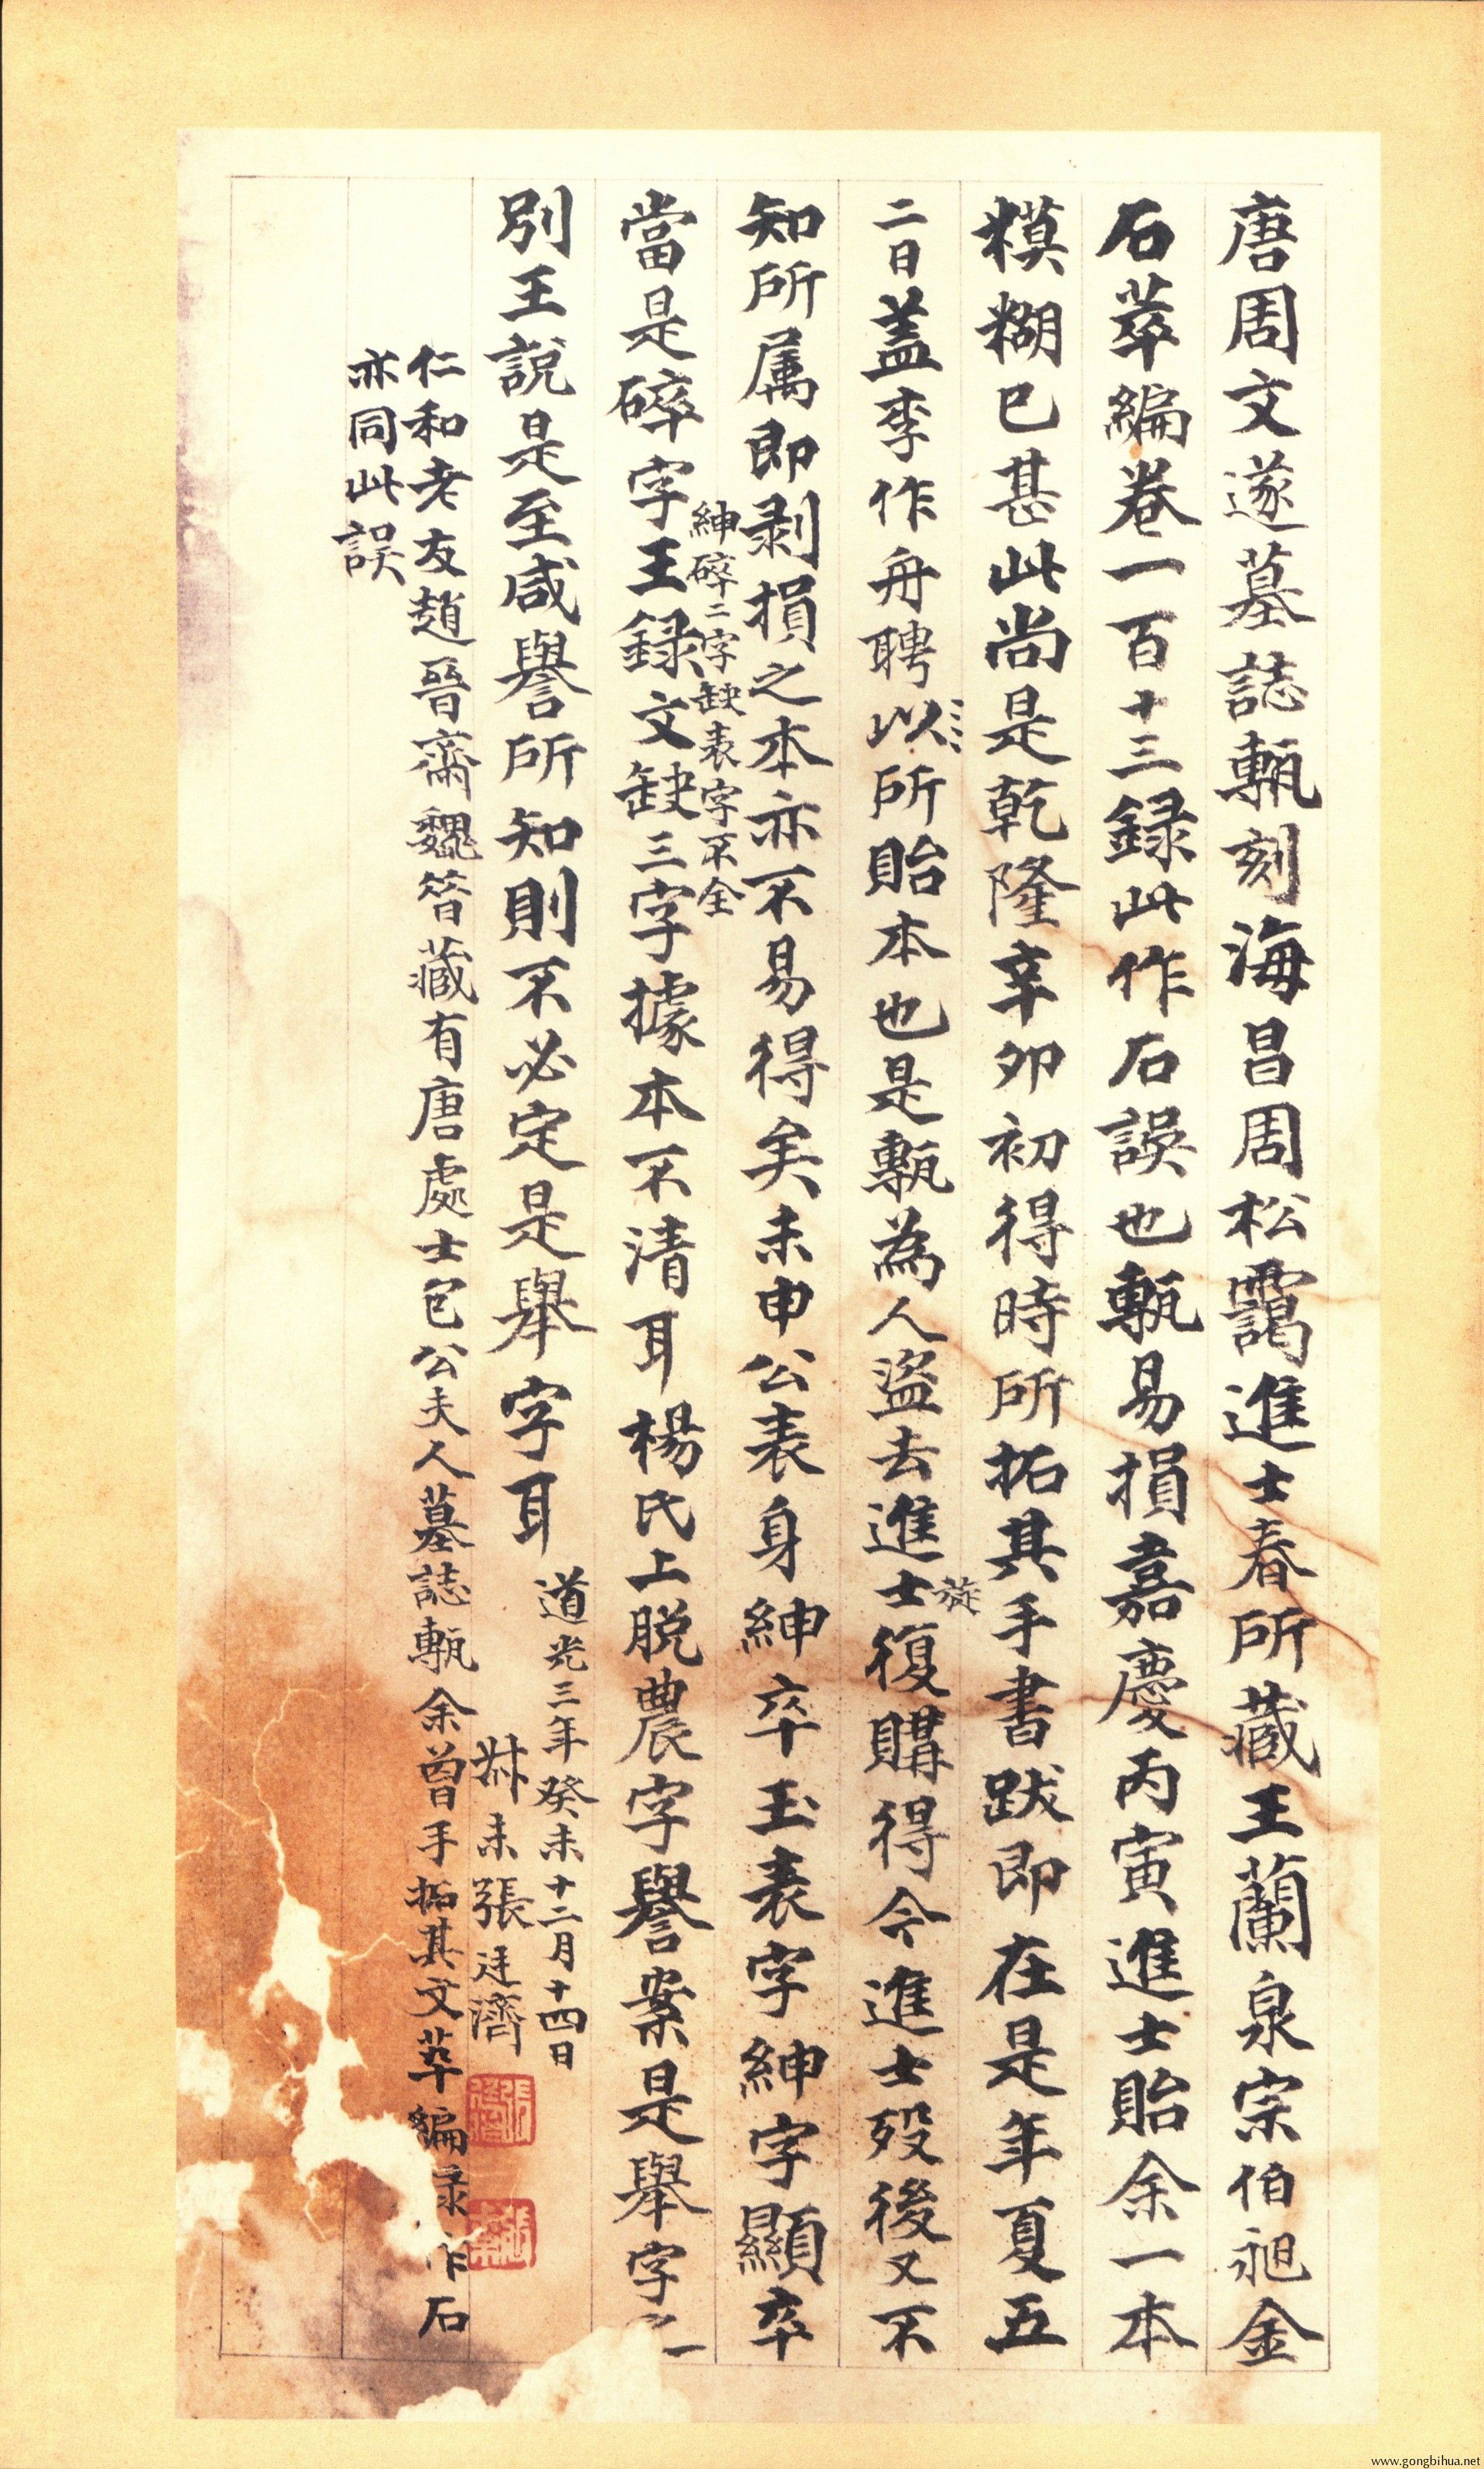 唐周文遂墓誌甎刻海昌周松靄進士春所藏王蘭泉宗伯昶金
石萃編卷一百十三録此作石誤也甎易損嘉慶丙寅進士貽余一本
糢糊已甚此尚是乾隆辛卯初得時所拓其手書跋即在是年夏五
二日盖李作舟聘以所貽本也是甎為人盜去進士復購得今進士歿後又不
旋
知所属即剥損之本亦不易得矣未申公表身紳卒玉表字紳字顯卒
當是碎字王録文缺三字據本不清耳楊氏上脱農字譽案是舉字之一
紳碎二字缺表字不全
別王說是至咸譽所知則不必定是舉字耳
道光三年癸未十二月十四日
叔未張廷濟
仁和老友趙晉齋魏笿藏有唐處士包公夫人墓誌甎余曾手拓其文萃編录作石
亦同此誤
www.gongbihua.net